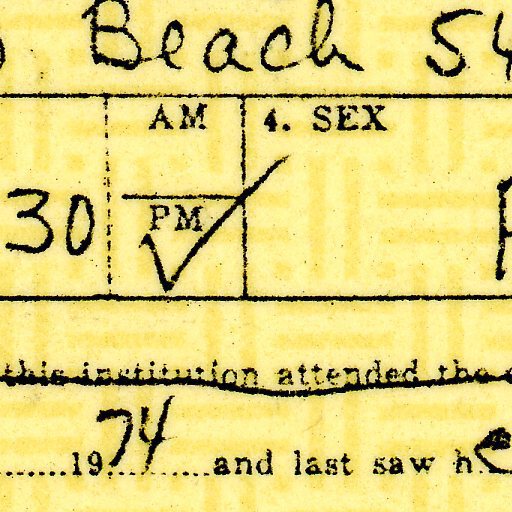 Beach 54
AM 4. SEX
30 PM ✓
this institution attended the
1974 and last saw he